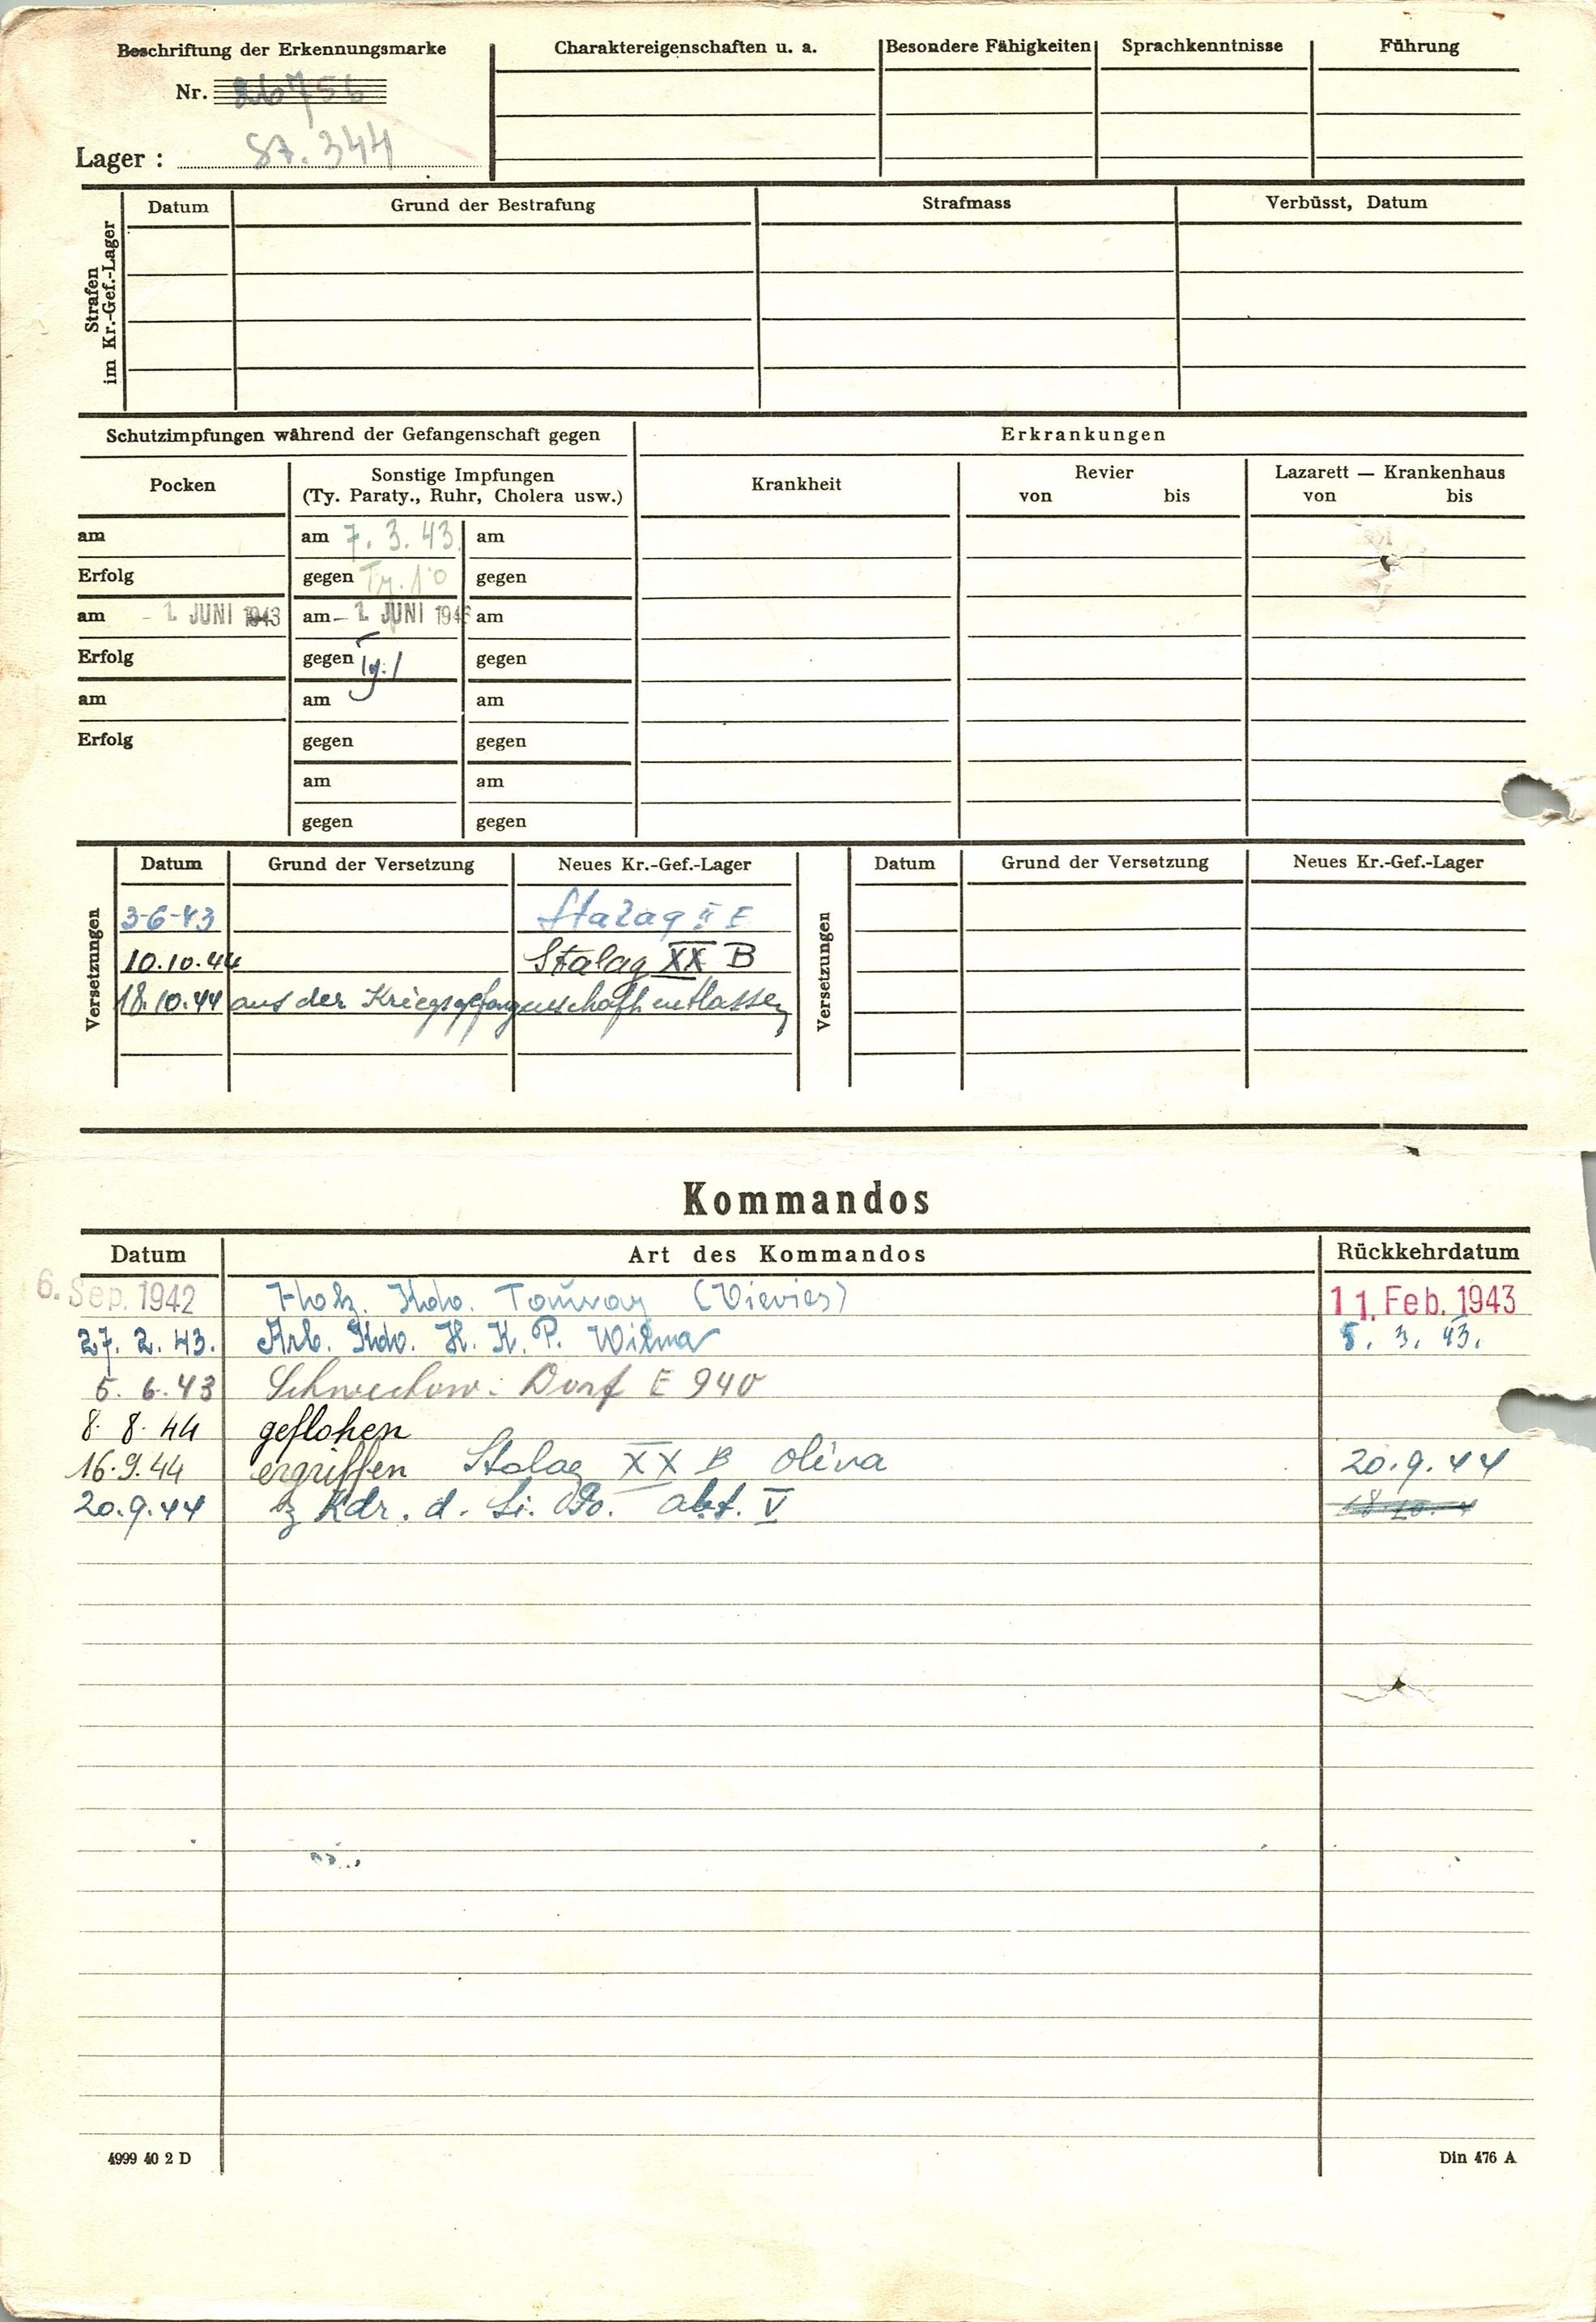 Beschriftung der Erkennungsmarke
Nr. 26756
Lager : St. 344
Charaktereigenschaften u. a.
Besondere Fähigkeiten
Sprachkenntnisse
Führung
Strafen
im Kr.-Gef.-Lager
Datum
Grund der Bestrafung
Strafmass
Verbüsst, Datum
Schutzimpfungen während der Gefangenschaft gegen
Erkrankungen
Pocken
Sonstige Impfungen
(Ty. Paraty., Ruhr, Cholera usw.)
Krankheit
Revier
von bis
Lazarett — Krankenhaus
von bis
am am 7. 3. 43. am
Erfolg gegen gegen
am - 1. JUNI 1943 am - 1. JUNI 194 am
Erfolg gegen Ty. / gegen
am am am
Erfolg gegen gegen
am am
gegen gegen
Versetzungen
Datum Grund der Versetzung Neues Kr.-Gef.-Lager
3-6-43 Stalag II E
10.10.44 Stalag XX B
18.10.44 aus der Kriegsgefangenschaft entlassen
Versetzungen
Datum Grund der Versetzung Neues Kr.-Gef.-Lager
Kommandos
Datum Art des Kommandos Rückkehrdatum
6. Sep. 1942 Holz. Kdo. (Vievies) 11. Feb. 1943
27. 2. 43. Arb. Kdo. H. K. P. Wilna 5. 3. 43.
5. 6. 43 Schwechow: Dorf E 940
8. 8. 44 geflohen
16.9.44 ergriffen Stalag XX B Oliva 20.9.44
20.9.44 z Kdr. d. Si. Po. abt. V
4999 40 2 D
Din 476 A